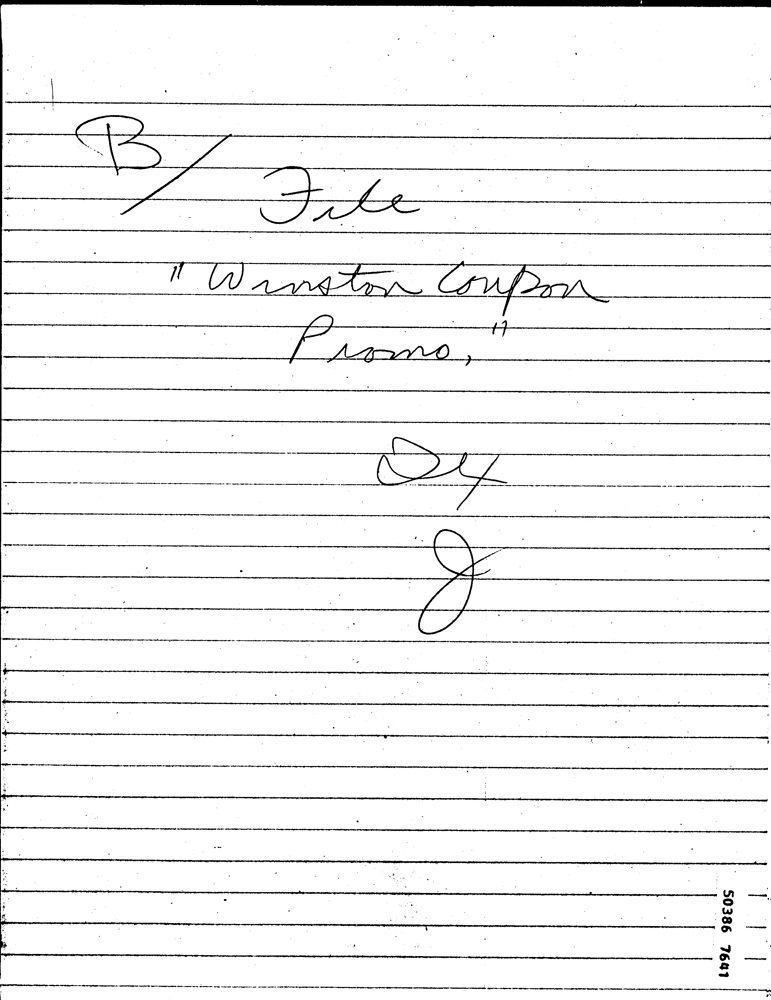 B/
File
"Winston Coupon
Promo,"
J
50386 7641